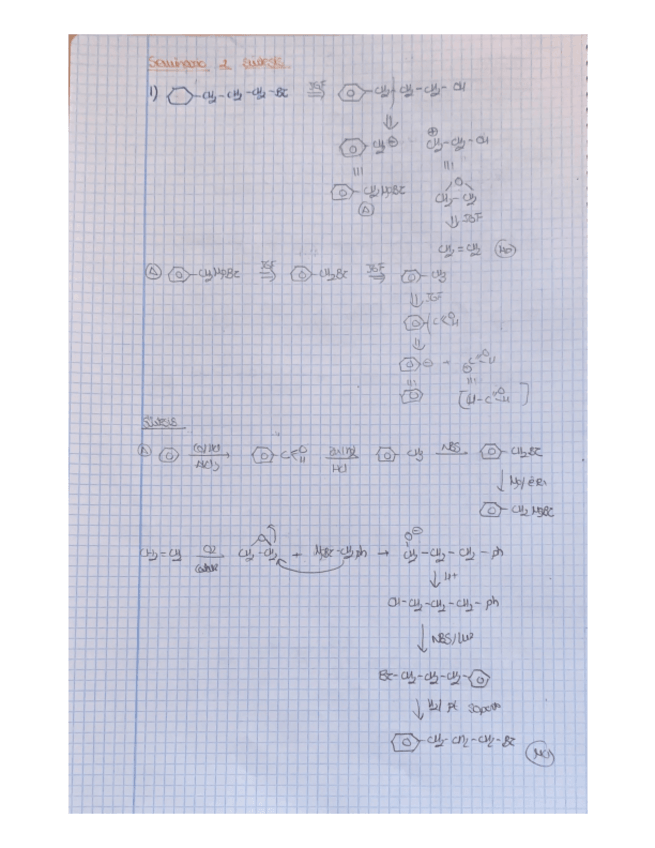 Seminario 2 síntesis
1) -CH2-CH2-CH2-Br IGF ⇒ -CH2-CH2-CH2-OH
CH2⊖ ⊕CH2-CH2-OH
CH2MgBr O
A CH2-CH2
IGF
CH2=CH2
A -CH2MgBr IGF ⇒ -CH2Br IGF ⇒ -CH3
IGF
C=O H
⊖ + ⊕C=O H
[H-C=O H]
Síntesis
A CO/HCl AlCl3 → C=O H Zn/Hg HCl CH3 NBS CH2Br
Mg/éter
CH2MgBr
CH2=CH2 O2 O CH2-CH2 + MgBr-CH2Ph → O⊖ CH2-CH2-CH2-Ph
H+
OH-CH2-CH2-CH2-Ph
NBS/
Br-CH2-CH2-CH2-
H2/Pt
-CH2-CH2-CH2-Br